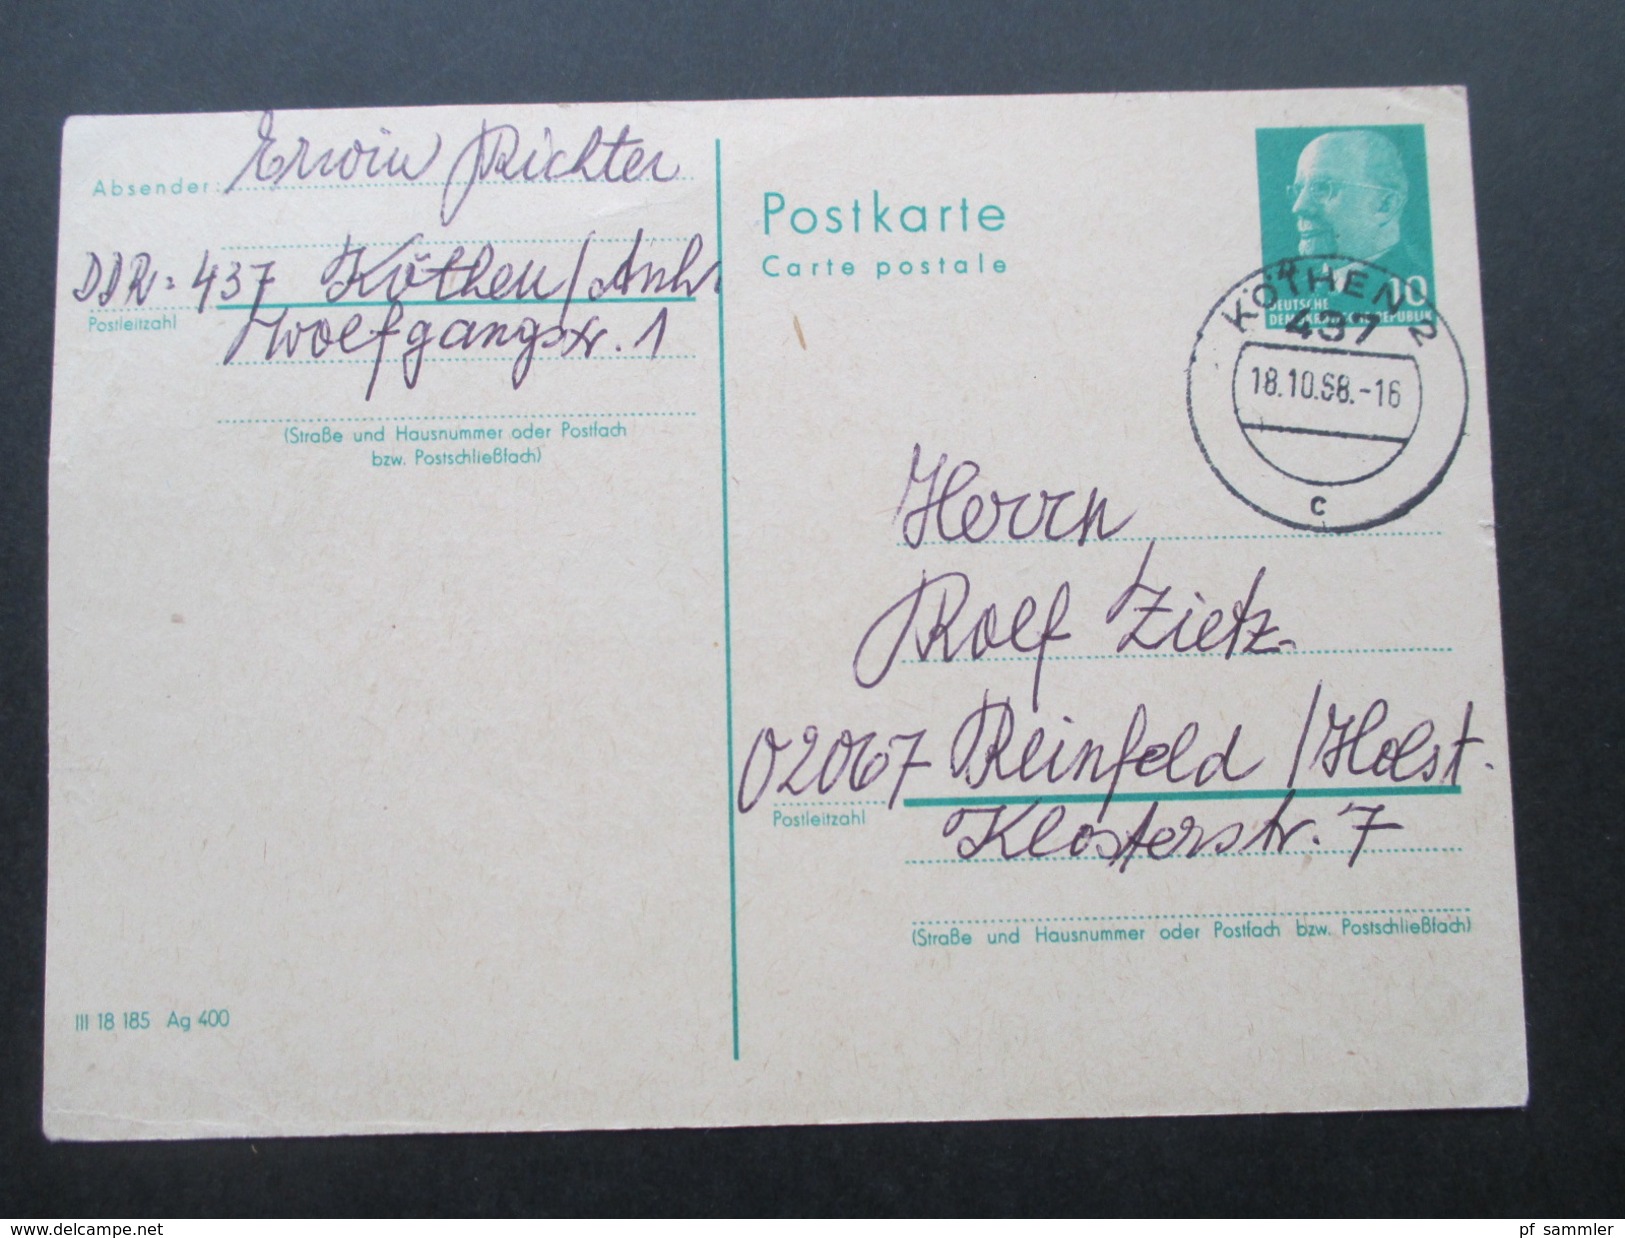 Absender: Erwin Richter
DDR - 437 Köthen / Anh.
Postleitzahl
Wolfgangstr. 1
(Straße und Hausnummer oder Postfach
bzw. Postschließfach)
III 18 185 Ag 400
Postkarte
Carte postale
10
DEUTSCHE
DEMOKRATISCHE REPUBLIK
KÖTHEN 2
437
18.10.68.-16
c
Herrn
Rolf Zietz
02067 Reinfeld / Holst.
Postleitzahl
Klosterstr. 7
(Straße und Hausnummer oder Postfach bzw. Postschließfach)
www.delcampe.net
pf_sammler